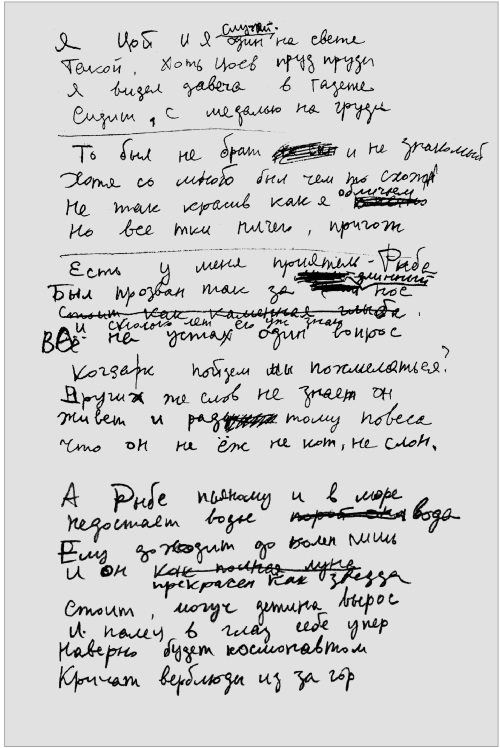 Я Цой и я случай.
один на свете
Такой, хоть Цоев пруд пруди
Я видел давеча в газете
Сидит, с медалью на груди
То был не брат и не знакомый
Хотя со мною был чем то схож
Не так красив как я обличьем
Но все тки ничего, пригож
Есть у меня приятель - Рыбе
Был прозван так за длинный нос
Стоит как каменная глыба.
и сколько лет его уж знаю
Всё на устах один вопрос
Когда пойдем мы похмеляться?
Других же слов не знает он
Живет и рад тому повеса
Что он не ёж не кот, не слон.
А Рыбе пьяному и в море
недостаёт воды вода
Ему доходит до колен лишь
И он как полная луна
прекрасен как звезда
Стоит, могуч детина вырос
И палец в глаз себе упер
Наверно будет космонавтом
Кричат верблюды из за гор